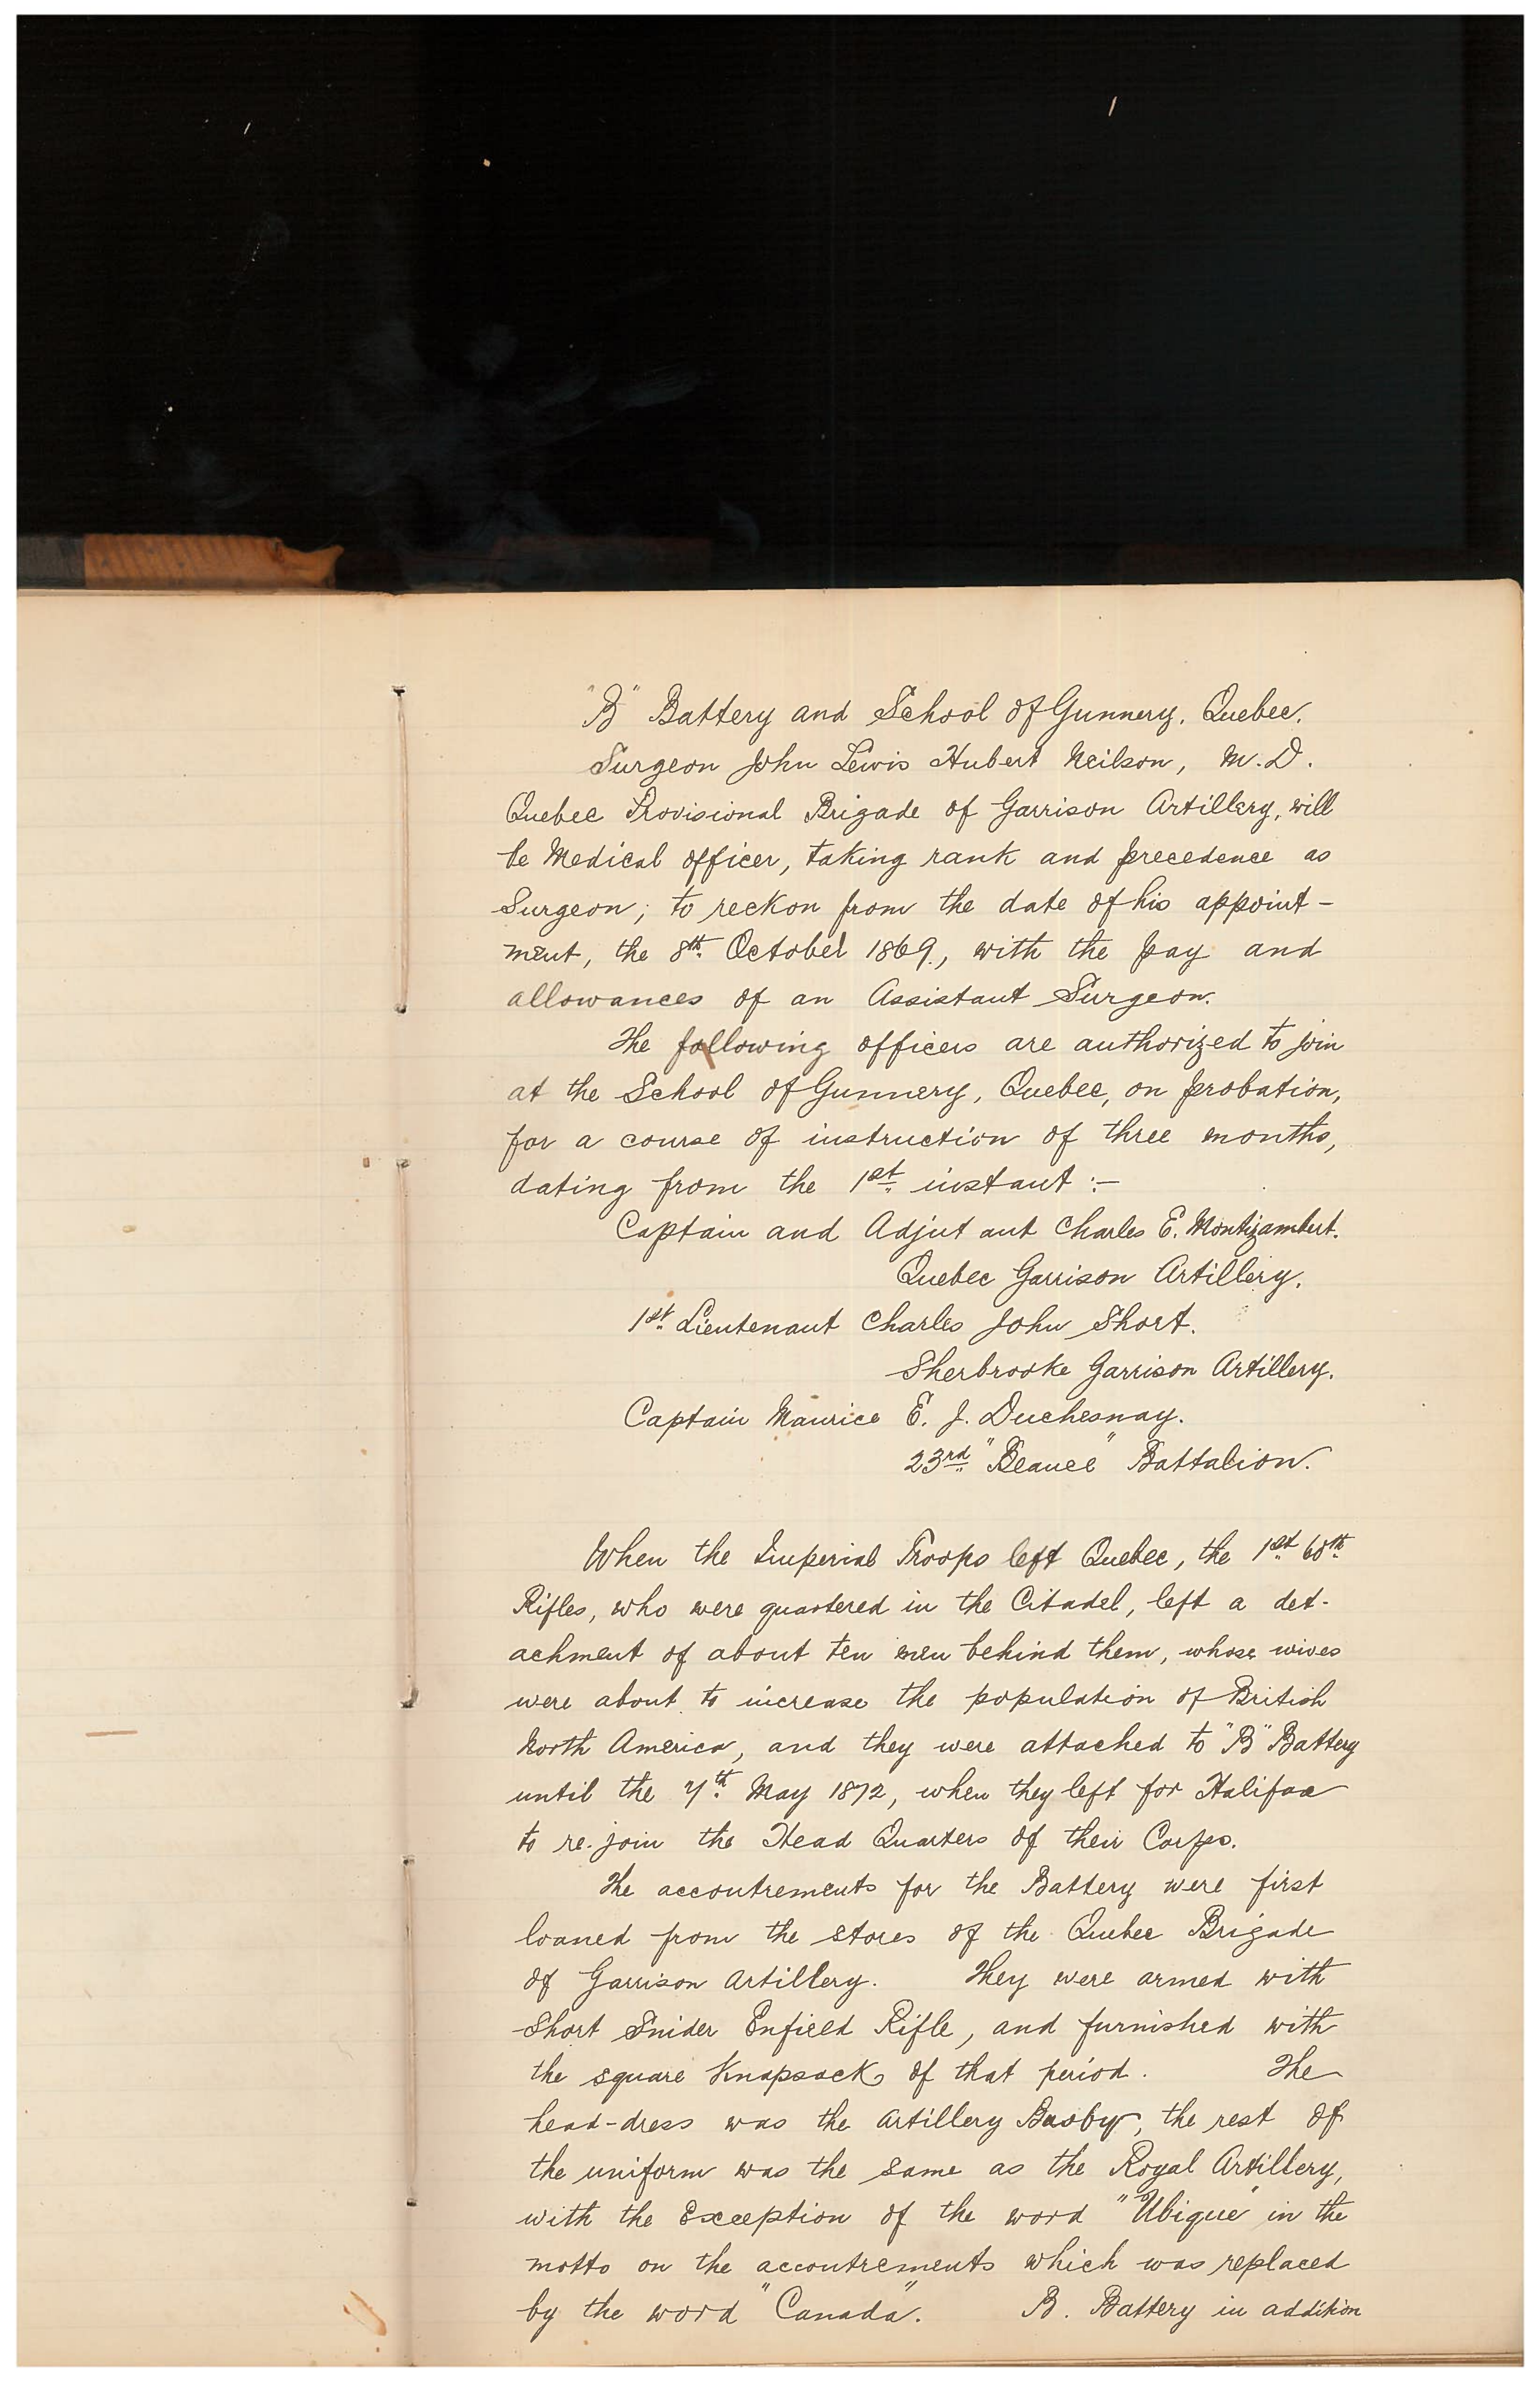 "B" Battery and School of Gunnery, Quebec.
Surgeon John Lewis Hubert Neilson, M.D.
Quebec Provisional Brigade of Garrison Artillery, will
be Medical officer, taking rank and precedence as
Surgeon; to reckon from the date of his appoint-
ment, the 8th October 1869., with the pay and
allowances of an Assistant Surgeon.
The following officers are authorized to join
at the School of Gunnery, Quebec, on probation,
for a course of instruction of three months,
dating from the 1st instant :-
Captain and Adjutant Charles E. Montizambert.
Quebec Garrison Artillery.
1st Lieutenant Charles John Short.
Sherbrooke Garrison Artillery.
Captain Maurice E. J. Duchesnay.
23rd "Beauce" Battalion.
When the Imperial Troops left Quebec, the 1st 60th
Rifles, who were quartered in the Citadel, left a det-
achment of about ten men behind them, whose wives
were about to increase the population of British
North America, and they were attached to "B" Battery
until the 7th May 1872, when they left for Halifax
to re-join the Head Quarters of their Corps.
The accoutrements for the Battery were first
loaned from the stores of the Quebec Brigade
of Garrison Artillery. They were armed with
Short Snider Enfield Rifle, and furnished with
the square Knapsacks of that period. The
head-dress was the Artillery Busby, the rest of
the uniform was the same as the Royal Artillery,
with the Exception of the word "Ubique" in the
motto on the accoutrements which was replaced
by the word "Canada". B. Battery in addition